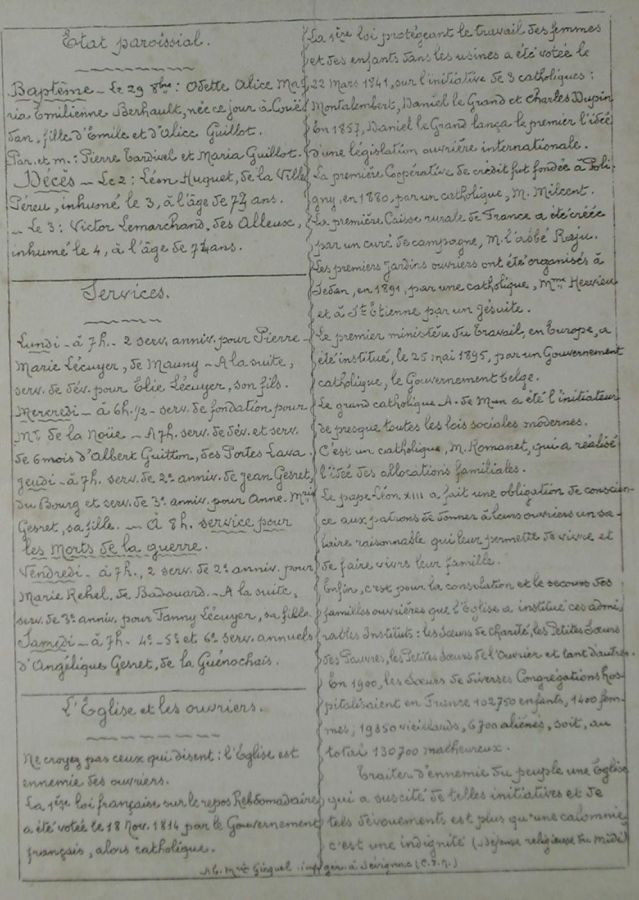 Etat paroissial.
Baptême - Le 29 8bre : Odette Alice Ma-
ria Emilienne Berhault, née ce jour à Couë-
dan, fille d'Emile et d'Alice Guillot.
Par. et m. : Pierre Tardivel et Maria Guillot.
Décès - Le 2 : Léon Huguet, de la Ville
Péreu, inhumé le 3, à l'âge de 7½ ans.
- Le 3 : Victor Lemarchand, des Alleux,
inhumé le 4, à l'âge de ans.
Services.
Lundi - à 7h. - 2 serv. anniv. pour Pierre-
Marie Lécuyer, de Mauny - A la suite,
serv. de dév. pour Elie Lécuyer, son fils.
Mercredi - à 6h.½ - serv. de fondation pour
Mr de la Noüe - A 7h. serv. de dév. et serv.
de 6 mois d'Albert Guitton, des Portes Lava.
Jeudi - à 7h. serv. de 2e anniv. de Jean Gesret,
du Bourg et serv. de 3e anniv. pour Anne-Mrie
Gesret, sa fille. - A 8h. service pour
les Morts de la guerre.
Vendredi - à 7h., 2 serv. de 2e anniv. pour
Marie Rehel, de Badouard. - A la suite,
serv. de 3e anniv. pour Fanny Lécuyer, sa fille.
Samedi - à 7h. 4e - 5e et 6e serv. annuels
d'Angélique Gesret, de la Guénochais.
L'Eglise et les ouvriers.
Ne croyez pas ceux qui disent : l'Eglise est
ennemie des ouvriers.
La 1ère loi française sur le repos Hebdomadaire
a été votée le 18 Nov. 1814 par le Gouvernement
français, alors catholique.
La 1ère loi protégeant le travail des femmes
et des enfants dans les usines a été votée le
22 Mars 1841, sur l'initiative de 3 catholiques :
Montalembert, Daniel le Grand et Charles Dupin
En 1857, Daniel le Grand lança le premier l'idée
d'une législation ouvrière internationale.
La première Coopérative de crédit fut fondée à Poli-
gny, en 1880, par un catholique, M. Milcent.
La première Caisse rurale de France a été créée
par un curé de campagne, M. l'abbé Raju.
Les premiers jardins ouvriers ont été organisés à
Sedan, en 1891, par une catholique, Mme Hervieu
et à St Etienne par un jésuite.
Le premier ministère du Travail, en Europe, a
été institué, le 25 mai 1895, par un Gouvernement
catholique, le Gouvernement belge.
Le grand catholique A. de Mun a été l'initiateur
de presque toutes les lois sociales modernes.
C'est un catholique, M. Romanet, qui a réalisé
l'idée des allocations familiales.
Le pape Léon XIII a fait une obligation de conscien-
ce aux patrons de donner à leurs ouvriers un sa-
laire raisonnable qui leur permette de vivre et
de faire vivre leur famille.
Enfin, c'est pour la consolation et le secours des
familles ouvrières que l'Eglise a institué ces admi-
rables Instituts : les Sœurs de charité, les Petites Sœurs
des Pauvres, les Petites Sœurs de l'Ouvrier et tant d'autres.
En 1900, les Sœurs de diverses Congrégations hos-
pitalisaient en France 102750 enfants, 1400 fem-
mes, 19850 vieillards, 6700 aliénés, soit, au
total 130700 malheureux.
Traiter d'ennemie du peuple une Eglise
qui a suscité de telles initiatives et de
tels dévouements est plus qu'une calomnie
c'est une indignité (Défense religieuse du Midi)
Ab. Mce Gicquel à Sévignac (C.d.N.)